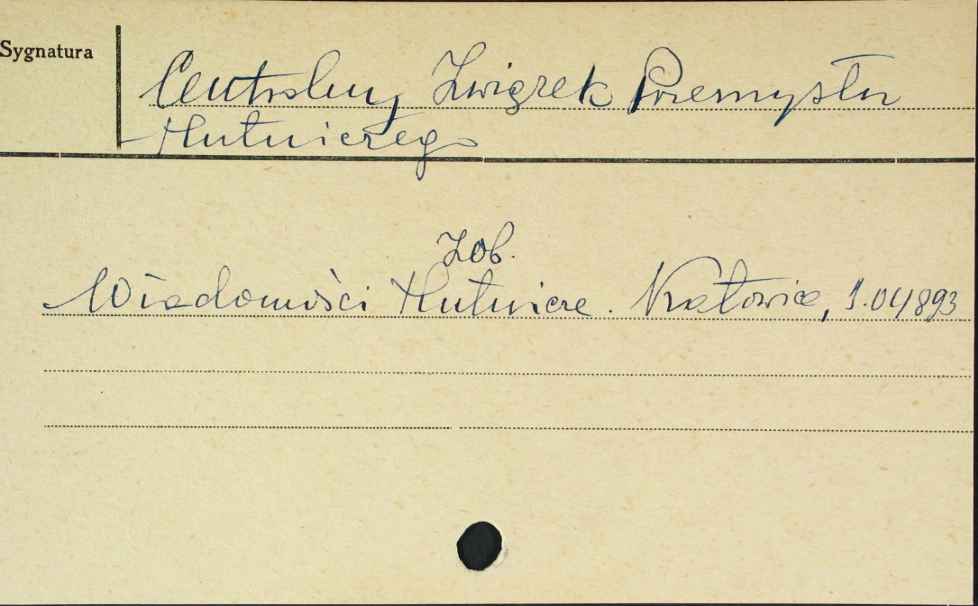 Sygnatura
Centralny Związek Przemysłu
Hutniczego
Zob.
Wiadomości Hutnicze. Katowice, J.04893